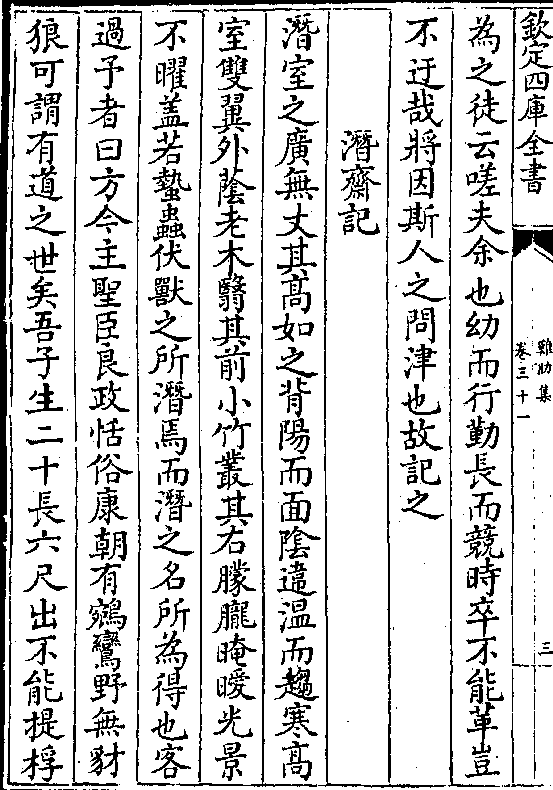 欽定四庫全書
雞肋集
卷三十一
三
為之徒云嗟夫余也幼而行勤長而競時卒不能革豈
不迂哉將因斯人之問津也故記之
潛齋記
潛室之廣無丈其髙如之背陽而面陰違溫而趨寒髙
室雙翼外蔭老木翳其前小竹叢其右朦朧晻曖光景
不曜盖若蟄蟲伏獸之所潛焉而潛之名所為得也客
過予者曰方今主聖臣良政恬俗康朝有鵷鸞野無豺
狼可謂有道之世矣吾子生二十長六尺出不能提桴